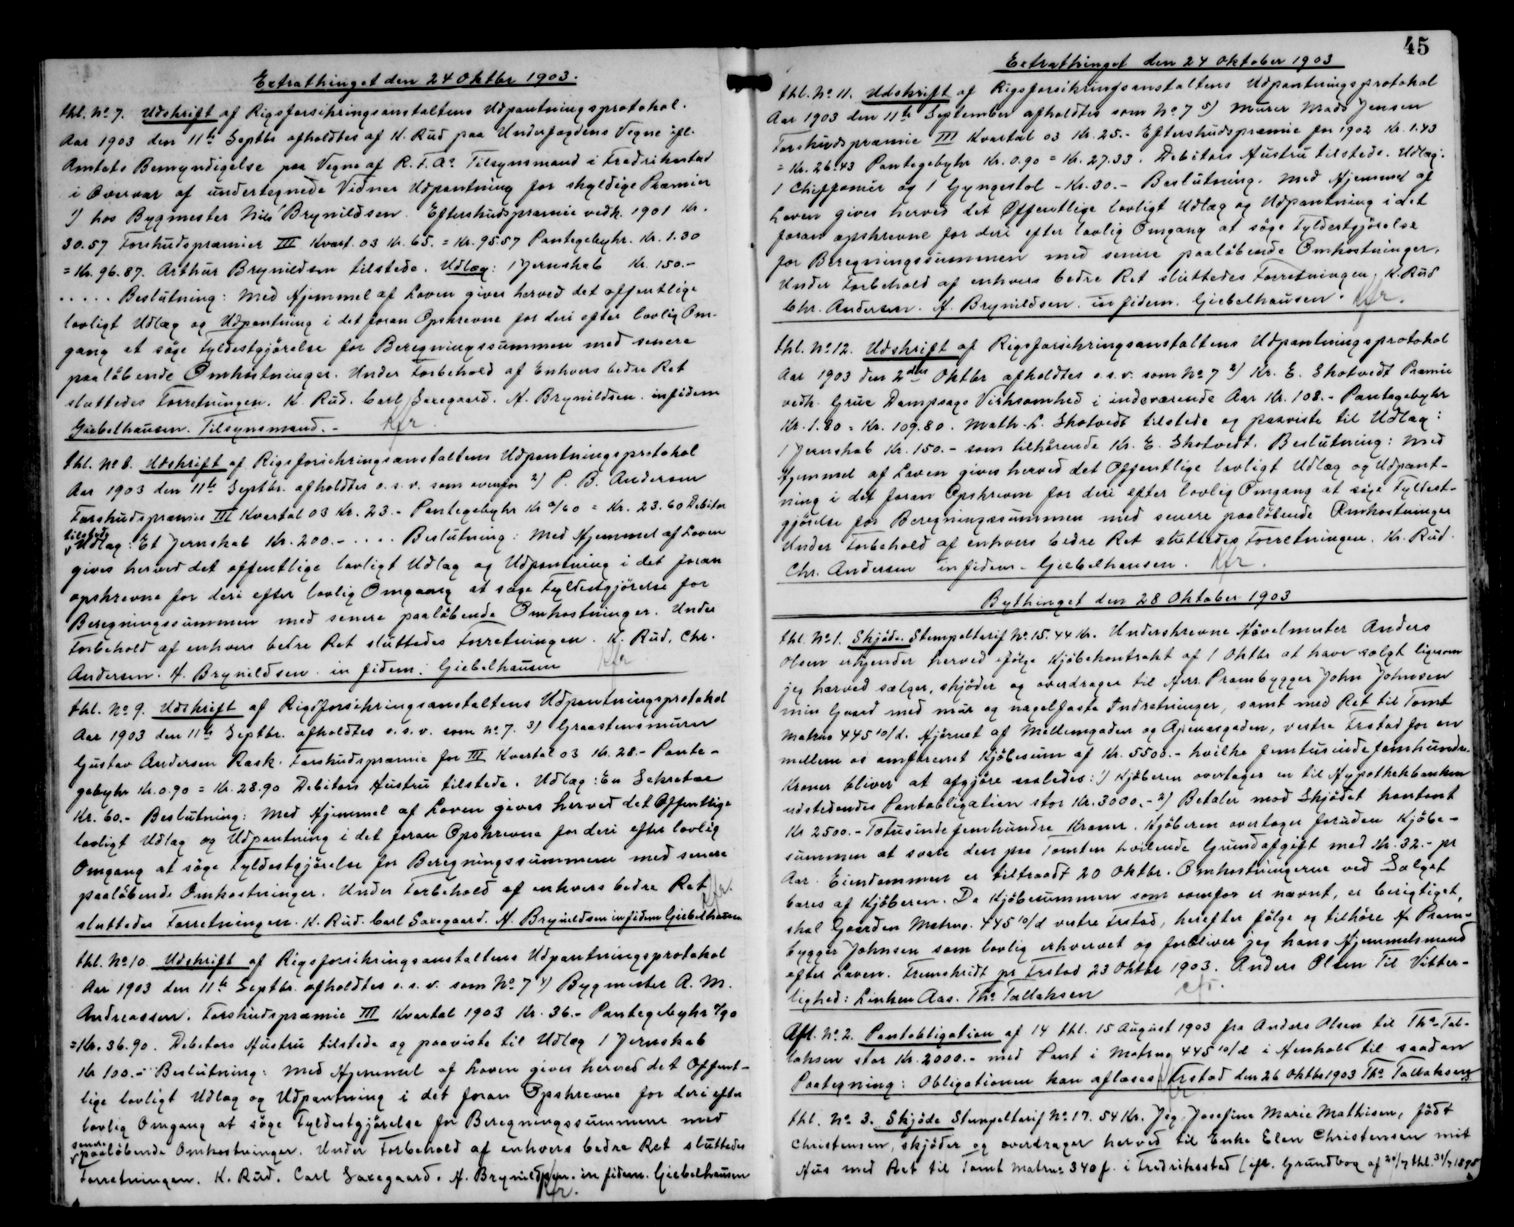 Extrathinget den 24 Oktbr 1903.
thl. No 7. Udskrift af Rigsforsikringsanstaltens Udpantningsprotokol.
Aar 1903 den 11te Septbr afholdtes af K. Rud paa Underfogdens Vegne ifl.
Amtets Bemyndigelse paa Vegne af R. F. As Tilsynsmand i Fredrikstad
i Overvær af undertegnede Vidner Udpantning for skyldige Præmier
1) hos Bygmester Nils Brynildsen. Efterskudspræmie vedk. 1901 Kr.
30.57 Forskudspræmier III Kvart. 03 Kr. 65. = Kr. 95.57 Pantegebyhr. Kr. 1.30
= Kr. 96.87. Arthur Brynildsen tilstede. Udlæg: 1 Jernskab Kr. 150.-
..... Beslutning: Med Hjemmel af Loven gives herved det offentlige
lovligt Udlæg og Udpantning i det foran Opskrevne for deri efter lovlig Om-
gang at söge Fyldestgjörelse for Beregningssummen med senere
paalöbende Omkostninger. Under Forbehold af Enhvers bedre Ret
sluttedes Forretningen. K. Rud. Carl Saxegaard. H. Brynildsen. in fidem
Giebelhausen. Tilsynsmand. - Kfr.
thl. No 8. Udskrift af Rigsforsikringsanstaltens Udpantningsprotokol
Aar 1903 den 11te Septbr. afholdtes o.s.v. som ovenfor 2) P. B. Andersen
Forskudspræmie III Kvartal 03 Kr. 23.- Pantegebyhr Kr 0/60 = Kr. 23.60 Debitor
tilstede
Udlæg: Et Jernskab Kr. 200.- ..... Beslutning: Med Hjemmel af Loven
gives herved det offentlige lovligt Udlæg og Udpantning i det foran
opskrevne for deri efter lovlig Omgang at söge Fyldestgjörelse for
Beregningssummen med senere paalöbende Omkostninger. Under
Forbehold af enhvers bedre Ret sluttedes Forretningen. K. Rud. Chr.
Andersen. H. Brynildsen. in fidem: Giebelhausen Kfr
thl. No 9. Udskrift af Rigsforsikringsanstaltens Udpantningsprotokol
Aar 1903 den 11te Septbr. afholdtes o.s.v. som No 7. 3) Graastensmurer
Gustav Andersen Rask. Forskudspræmie for III Kvartal 03 Kr. 28.- Pante-
gebyhr Kr. 0.90 = Kr. 28.90 Debitors Hustru tilstede. Udlæg: En Sekretær
Kr. 60.- Beslutning: Med Hjemmel af Loven gives herved det Offentlige
lovligt Udlæg og Udpantning i det foran Opskrevne for deri efter lovlig
Omgang at söge Fyldestgjörelse for Beregningssummen med senere
paalöbende Omkostninger. Under Forbehold af enhvers bedre Ret Kfr.
sluttedes Forretningen. K. Rud. Carl Saxegaard. H. Brynildsen in fidem Giebelhausen
thl. No 10. Udskrift af Rigsforsikringsanstaltens Udpantningsprotokol
Aar 1903 den 11te Septbr. afholdtes o.s.v. som No 7 4) Bygmester A. M.
Andreassen. Forskudspræmie III Kvartal 1903 Kr. 36.- Pantegebyhr 0/90
= Kr. 36.90. Debitors Hustru tilstede og paaviste til Udlæg 1 Jernskab
Kr 100.- Beslutning: Med Hjemmel af Loven gives herved det Offent-
lige lovligt Udlæg og Udpantning i det foran Opskrevne for deri efter
lovlig Omgang at söge Fyldestgjörelse for Beregningssummen med
senere
paalöbende Omkostninger. Under Forbehold af enhvers bedre Ret sluttedes
Forretningen. K. Rud. Carl Saxegaard. H. Brynildsen. in fidem. Giebelhausen
Kfr.
45
Extrathinget den 24 Oktober 1903
thl. No 11. Udskrift af Rigsforsikringsanstaltens Udpantningsprotokol
Aar 1903 den 11te September afholdtes som No 7 5) Murer Mads Jensen
Forskudspræmie III Kvartal 03 Kr. 25.- Efterskudspræmie for 1902 Kr. 1.43
= Kr. 26.43 Pantegebyhr Kr. 0.90 = Kr. 27.33. Debitors Hustru tilstede. Udlæg:
1 Chiffonier og 1 Gyngestol - Kr. 30.- Beslutning. Med Hjemmel af
Loven gives herved det Offentlige lovligt Udlæg og Udpantning i det
foran opskrevne for deri efter lovlig Omgang at söge Fyldestgjörelse
for Beregningssummen med senere paalöbende Omkostninger.
Under Forbehold af enhvers bedre Ret sluttedes Forretningen. K. Rud
Chr. Andersen. H. Brynildsen. in fidem. Giebelhausen. Kfr.
thl. No 12. Udskrift af Rigsforsikringsanstaltens Udpantningsprotokol
Aar 1903 den 2den Oktbr afholdtes o.s.v. som No 7 2) Kr. E. Skotvedt Præmie
vedk. Grue Dampsags Virksomhed i indeværende Aar Kr. 108.- Pantegebyhr
Kr. 1.80 = Kr. 109.80. Math. L. Skotvedt tilstede og paaviste til Udlæg:
1 Jernskab Kr. 150.- som tilhörende Kr. E. Skotvedt. Beslutning: Med
Hjemmel af Loven gives herved det Offentlige lovligt Udlæg og Udpant-
ning i det foran Opskrevne for deri efter lovlig Omgang at söge Fyldest-
gjörelse for Beregningssummen med senere paalöbende Omkostninger
Under Forbehold af enhvers bedre Ret sluttedes Forretningen. K. Rud.
Chr. Andersen in fidem. Giebelhausen. Kfr.
Bythinget den 28 Oktober 1903
thl. No 1. Skjöde. Stempeltarif No 15. 44 Kr. Underskrevne Hövelmester Anders
Olsen erkjender herved ifölge Kjöbekontrakt af 1 Oktbr at have solgt ligesom
jeg herved sælger, skjöder og overdrager til Herr Prambygger John Johnsen
min Gaard med mur og nagelfaste Indretninger, samt med Ret til Tomt
Matrno 445 10/d. Hjörnet af Mellemgaden og Ajernesgaden, vestre Frstad for en
mellem os omforenet Kjöbesum af Kr. 5500.- hvilke femtusindefemhundre
Kroner bliver at afgjöre saaledes: 1) Kjöberen overtager en til Hypothekbanken
udstedendes Pantobligation stor Kr. 3000.- 2) Betaler mod Skjödet kontant
Kr 2500.- Totusindefemhundre Kroner. Kjöberen overtager foruden Kjöbe-
summen at svare den paa Tomten hvilende Grundafgift med Kr. 32.- pr
Aar. Eiendommen er tiltraadt 20 Oktbr. Omkostningerne ved Salget
bæres af Kjöberen. Da Kjöbesummen som ovenfor er nævnt, er berigtiget,
skal Gaarden Matrno. 445 10/d vestre Frstad, herefter fölge og tilhöre H. Pram-
bygger Johnsen som lovlig erhvervet og forbliver jeg hans Hjemmelsmand
efter Loven. Trunskridt pr Frstad 23 Oktbr 1903. Anders Olsen Til Vitter-
lighed: Linken Aas. Ths Tollaksen cfr.
Afl. No 2. Pantobligation af 14 thl. 15 August 1903 fra Anders Olsen til Ths Tol-
laksen stor Kr. 2000.- med Pant i Matrno 445 10/d i Henhold til saadan
Paategning: Obligationen kan aflæses Frstad den 26 Oktbr 1903 Ths Tollaksen
thl. No. 3. Skjöde Stempeltarif No 17. 54 Kr. Jeg Josefine Marie Mathisen, född
Christensen, skjöder og overdrager herved til Enke Elen Christensen mit
Hus med Ret til Tomt Matrno 340 f. i Fredriksstad (ifl. Grundbog af 24/7 thl. 31/7 1895